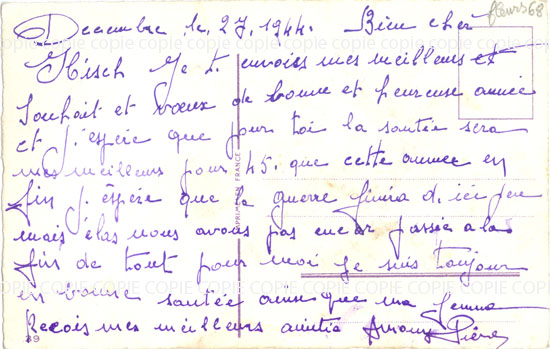 fleurs 68
Decembre le 27. 1944. Bien cher
Hisch Je t. envoies mes meilleurs et
Souhait et voeux de bonne et heureuse année
et j. espère que pour toi la santée sera
mes meilleurs pour 45. que cette année en
fin j. éspère que la guerre finira d. ici peu
mais élas nous avons pas encor passée a la
fin de tout pour moi Je suis toujour
en bonne santée ainsi que ma femme
Recois mes meilleurs amitié Pière
IMPRIMÉ EN FRANCE
39
COPIE COPIE COPIE COPIE COPIE COPIE